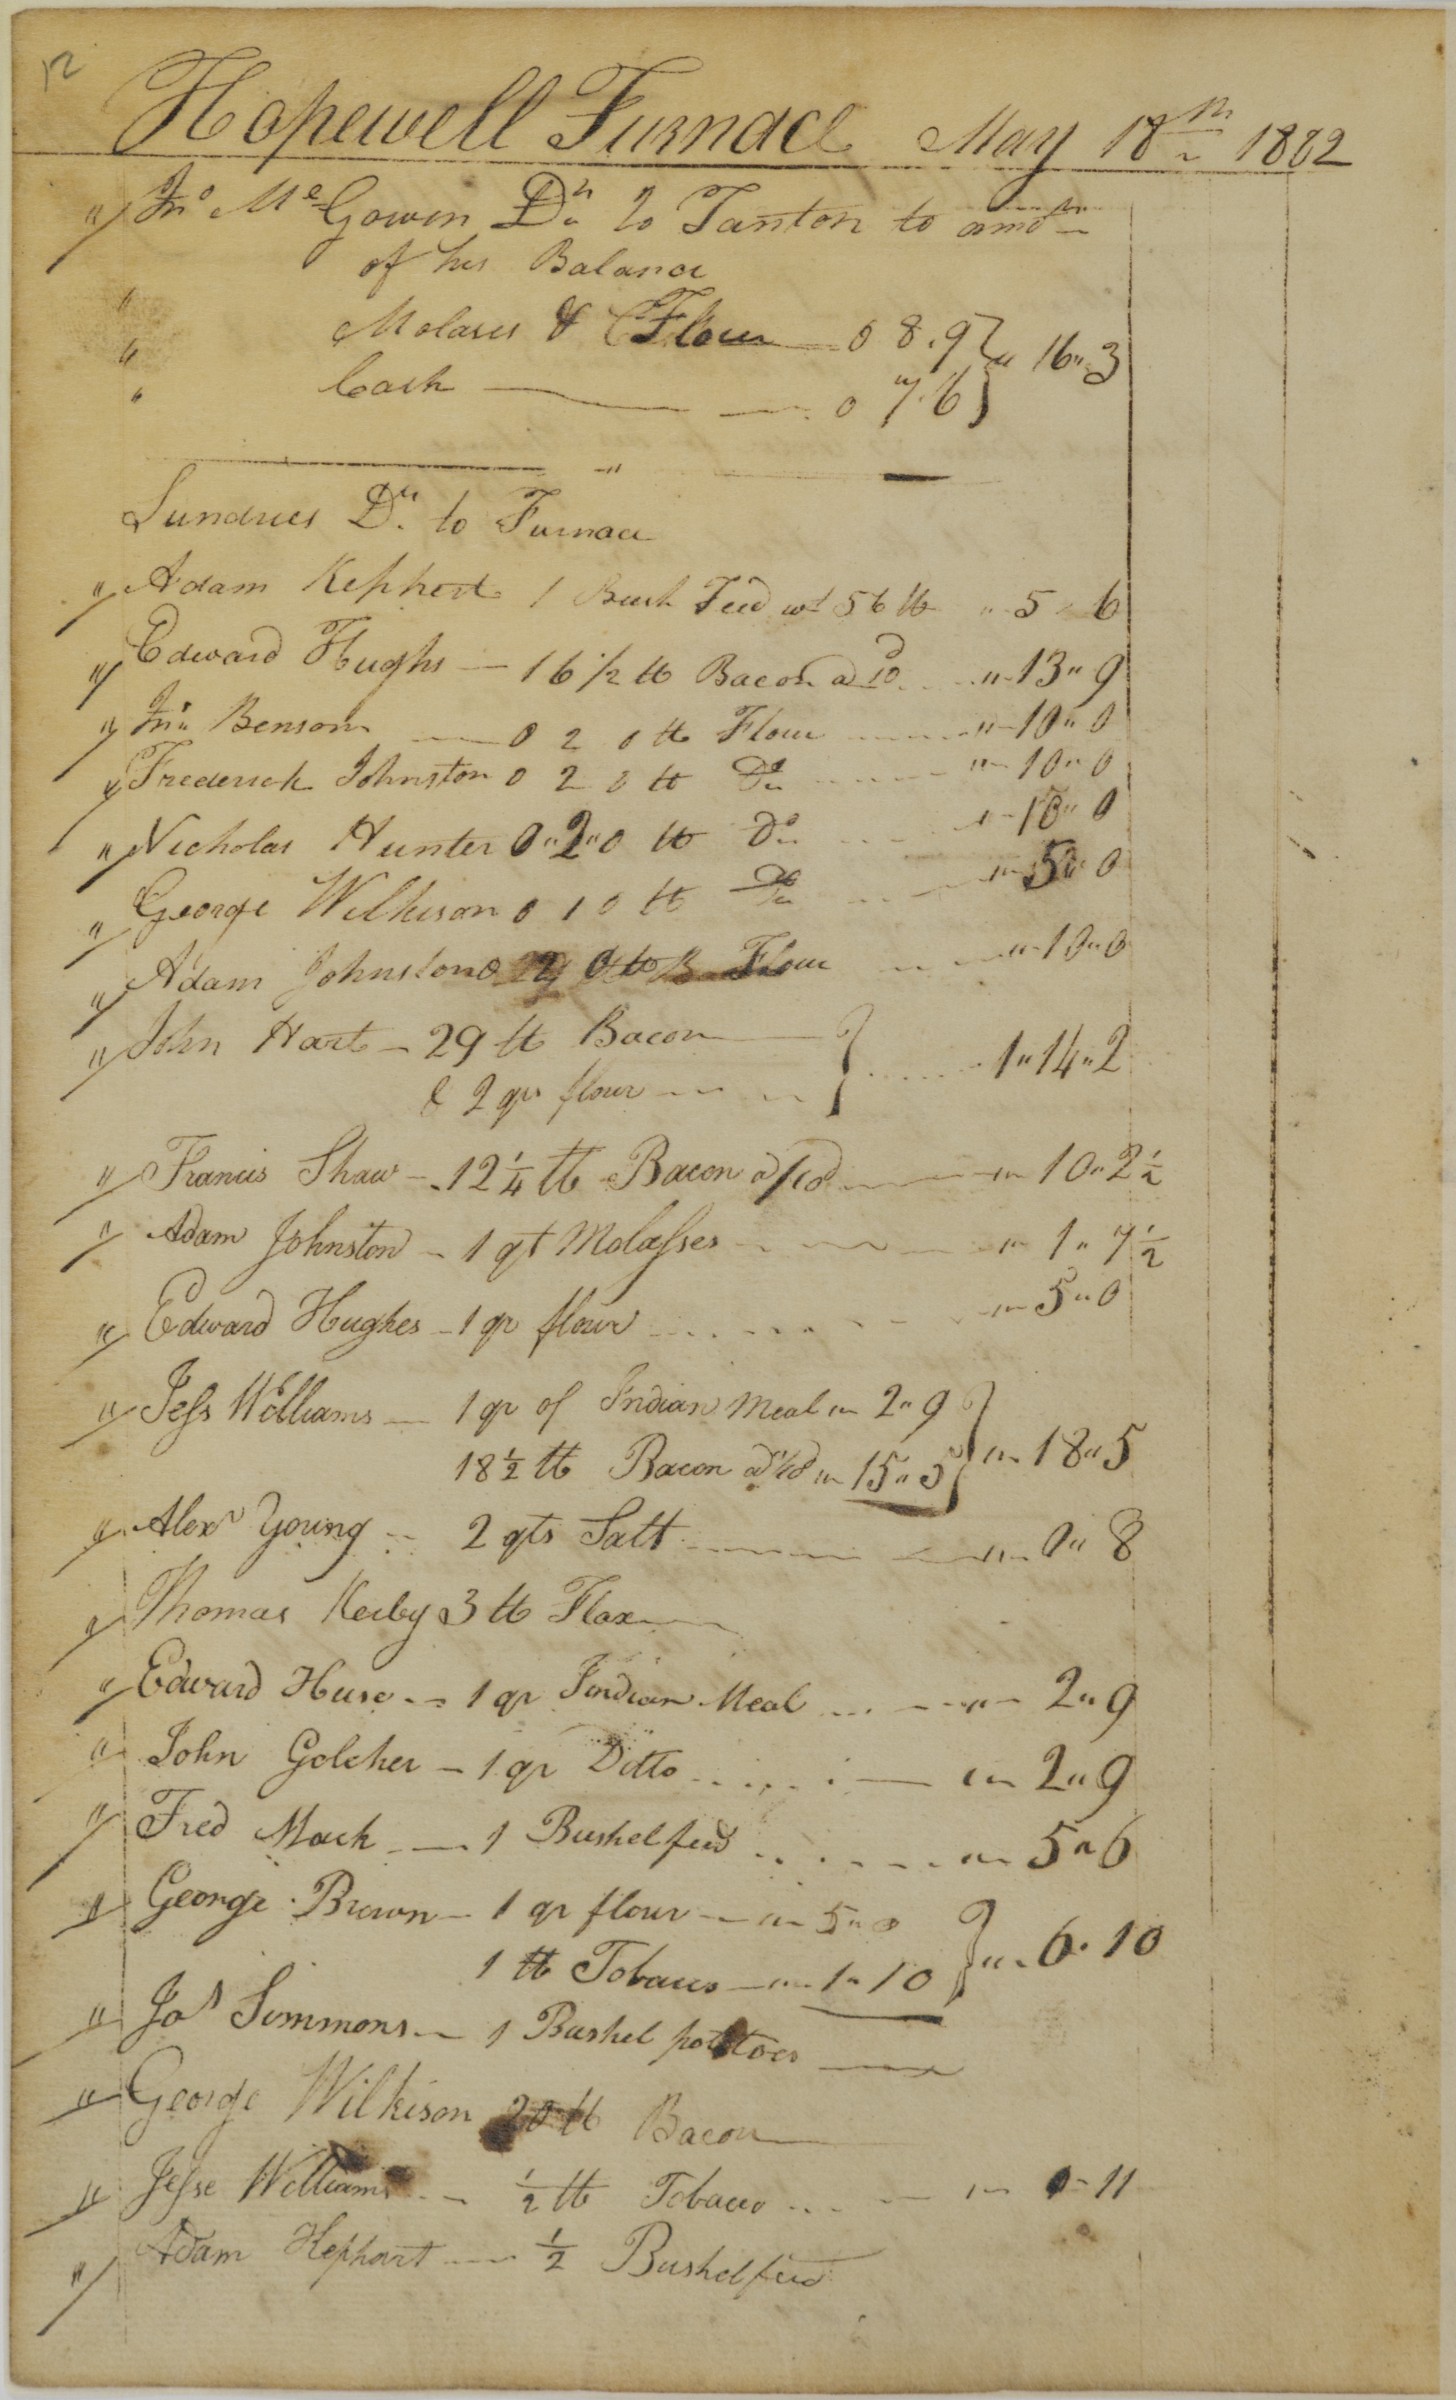 12
Hopewell Furnace May 18th 1802
" Jno McGowen Dr to Tanton to amot
of his Balance
" Molases & Flour 0 8.9 } " 16" 3
" Cash 0 7.6
"
Sundries Dr. to Furnace
" Adam Kephert 1 Bush Feed wt 56 lb " 5 " 6
" Edward Hughs 16 1/2 lb Bacon a 10d " 13" 9
" Jno Benson 0 2 0 lb Flour " 10" 0
" Frederick Johnston 0 2 0 lb Do " 10" 0
" Nicholas Hunter 0"2"0 lb Do " 10" 0
" George Wilkison 0 1 0 lb Do " 5" 0
" Adam Johnston 0 2 0 lb Flour " 10" 0
" John Hart - 29 lb Bacon
& 2 qr flour } 1" 14" 2
" Francis Shaw - 12 1/4 lb Bacon a/10d " 10" 2 1/2
" Adam Johnston - 1 qt Molasses " 1" 7 1/2
" Edward Hughes - 1 qr flour " 5" 0
" Jess Williams - 1 qr of Indian Meal " 2" 9
18 1/2 lb Bacon a/10d " 15" 5 } " 18" 5
" Alexr Young - 2 qts Salt " 0" 8
" Thomas Kerby 3 lb Flax
" Edward Huse - 1 qr Indian Meal " 2" 9
" John Golcher - 1 qr Ditto " 2" 9
" Fred Mack - 1 Bushel feed " 5" 6
" George Brown - 1 qr flour " 5" 0
1 lb Tobacco " 1" 10 } " 6" 10
" Jos Simmons - 1 Bushel potatoes
" George Wilkison 20 lb Bacon
" Jesse Williams - 1/2 lb Tobacco " 0 - 11
" Adam Hephart - 1/2 Bushel feed